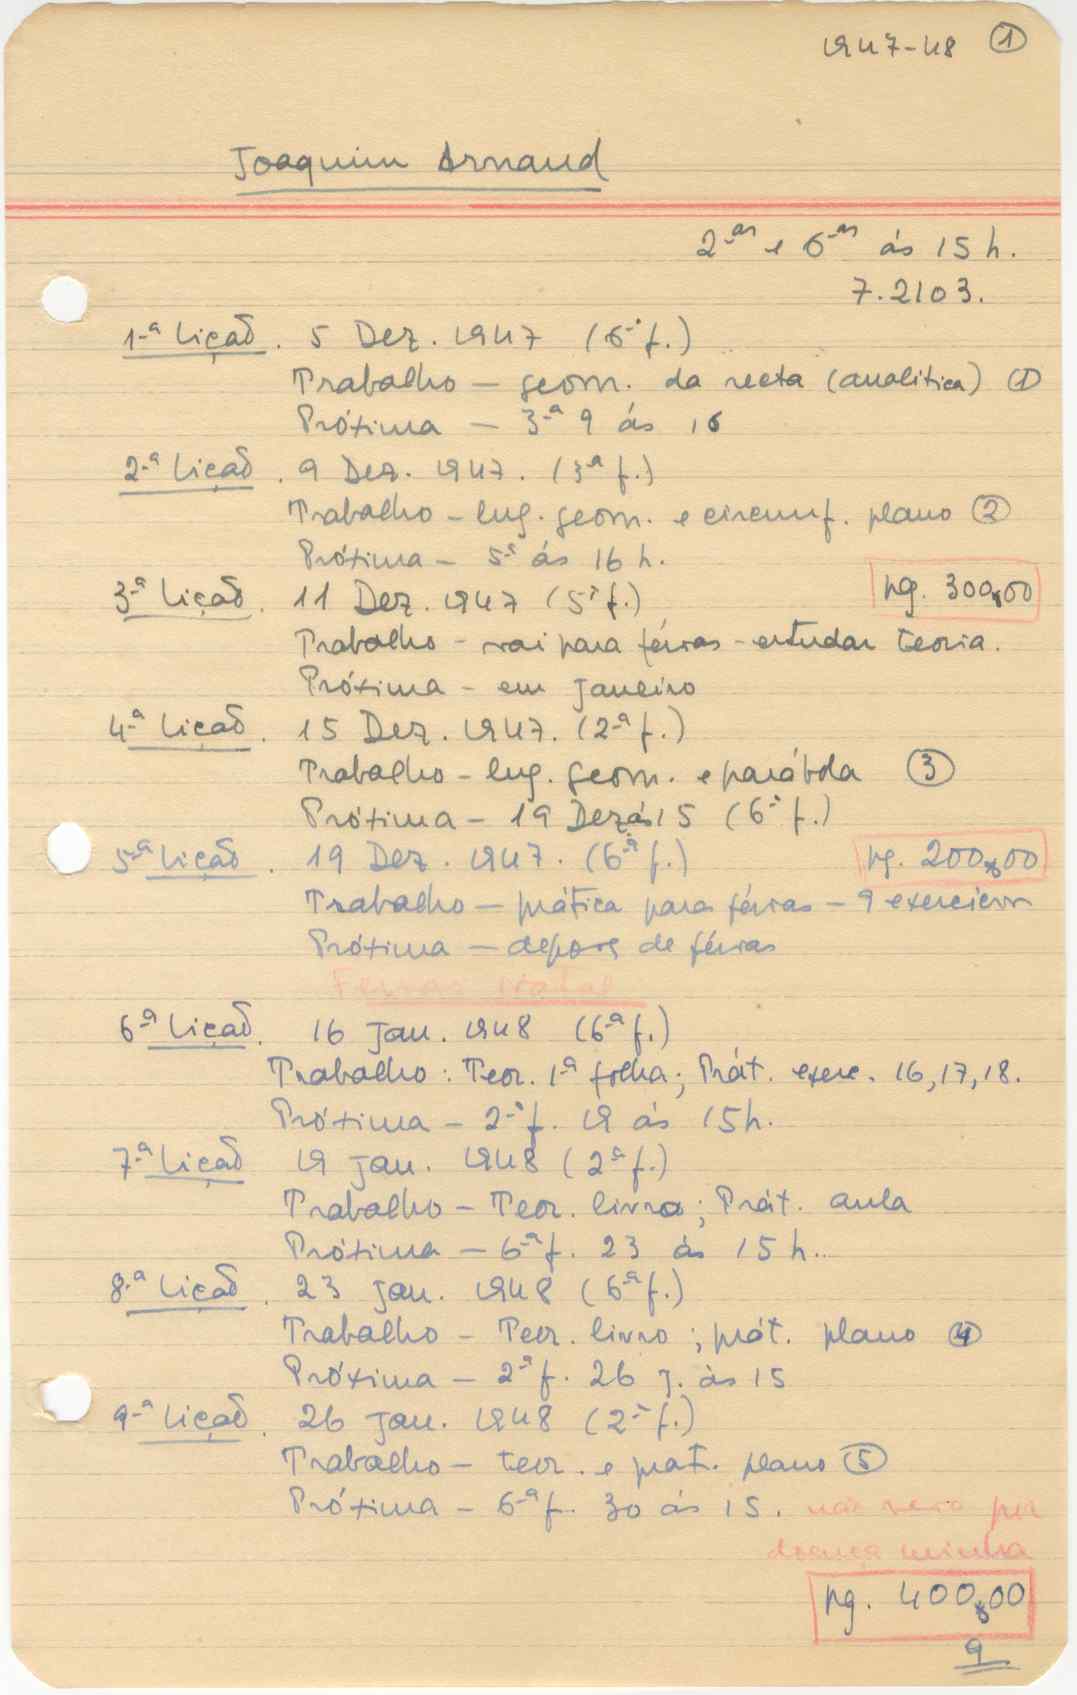 1947-48 ①
Joaquim Arnaud
2-as e 6-as ás 15 h.
7.2103.
1-ª Lição. 5 Dez. 1947 (6-ª f.)
Trabalho — geom. da recta (analítica) ①
Próxima — 3-ª 9 ás 16
2-ª Lição. 9 Dez. 1947. (3-ª f.)
Trabalho - lug. geom. e circumf. plano ②
Próxima — 5ª ás 16 h.
3-ª Lição. 11 Dez. 1947 (5ª f.) pg. 300$00
Trabalho - vai para férias - estudar teoria.
Próxima - em Janeiro
4-ª Lição. 15 Dez. 1947. (2-ª f.)
Trabalho - lug. geom. e parábola ③
Próxima - 19 Dez ás 15 (6-ª f.)
5-ª Lição. 19 Dez. 1947. (6-ª f.) pg. 200$00
Trabalho — prática para férias — 9 exercícios
Próxima — depois de férias
Ferias Natal
6-ª Lição. 16 Jan. 1948 (6-ª f.)
Trabalho: Teor. 1-ª folha; Prát. exerc. 16, 17, 18.
Próxima - 2-ª f. 19 ás 15h.
7-ª Lição 19 Jan. 1948 (2ª f.)
Trabalho - Teor. livro; Prát. aula
Próxima — 6-ª f. 23 ás 15 h.
8-ª Lição. 23 Jan. 1948 (6ª f.)
Trabalho - Teor. livro; prát. plano ④
Próxima — 2ª f. 26 J. às 15
9-ª Lição. 26 Jan. 1948 (2-ª f.)
Trabalho — teor. e prat. plano ⑤
Próxima - 6-ª f. 30 ás 15. não veio por
doença minha
pg. 400$00
9